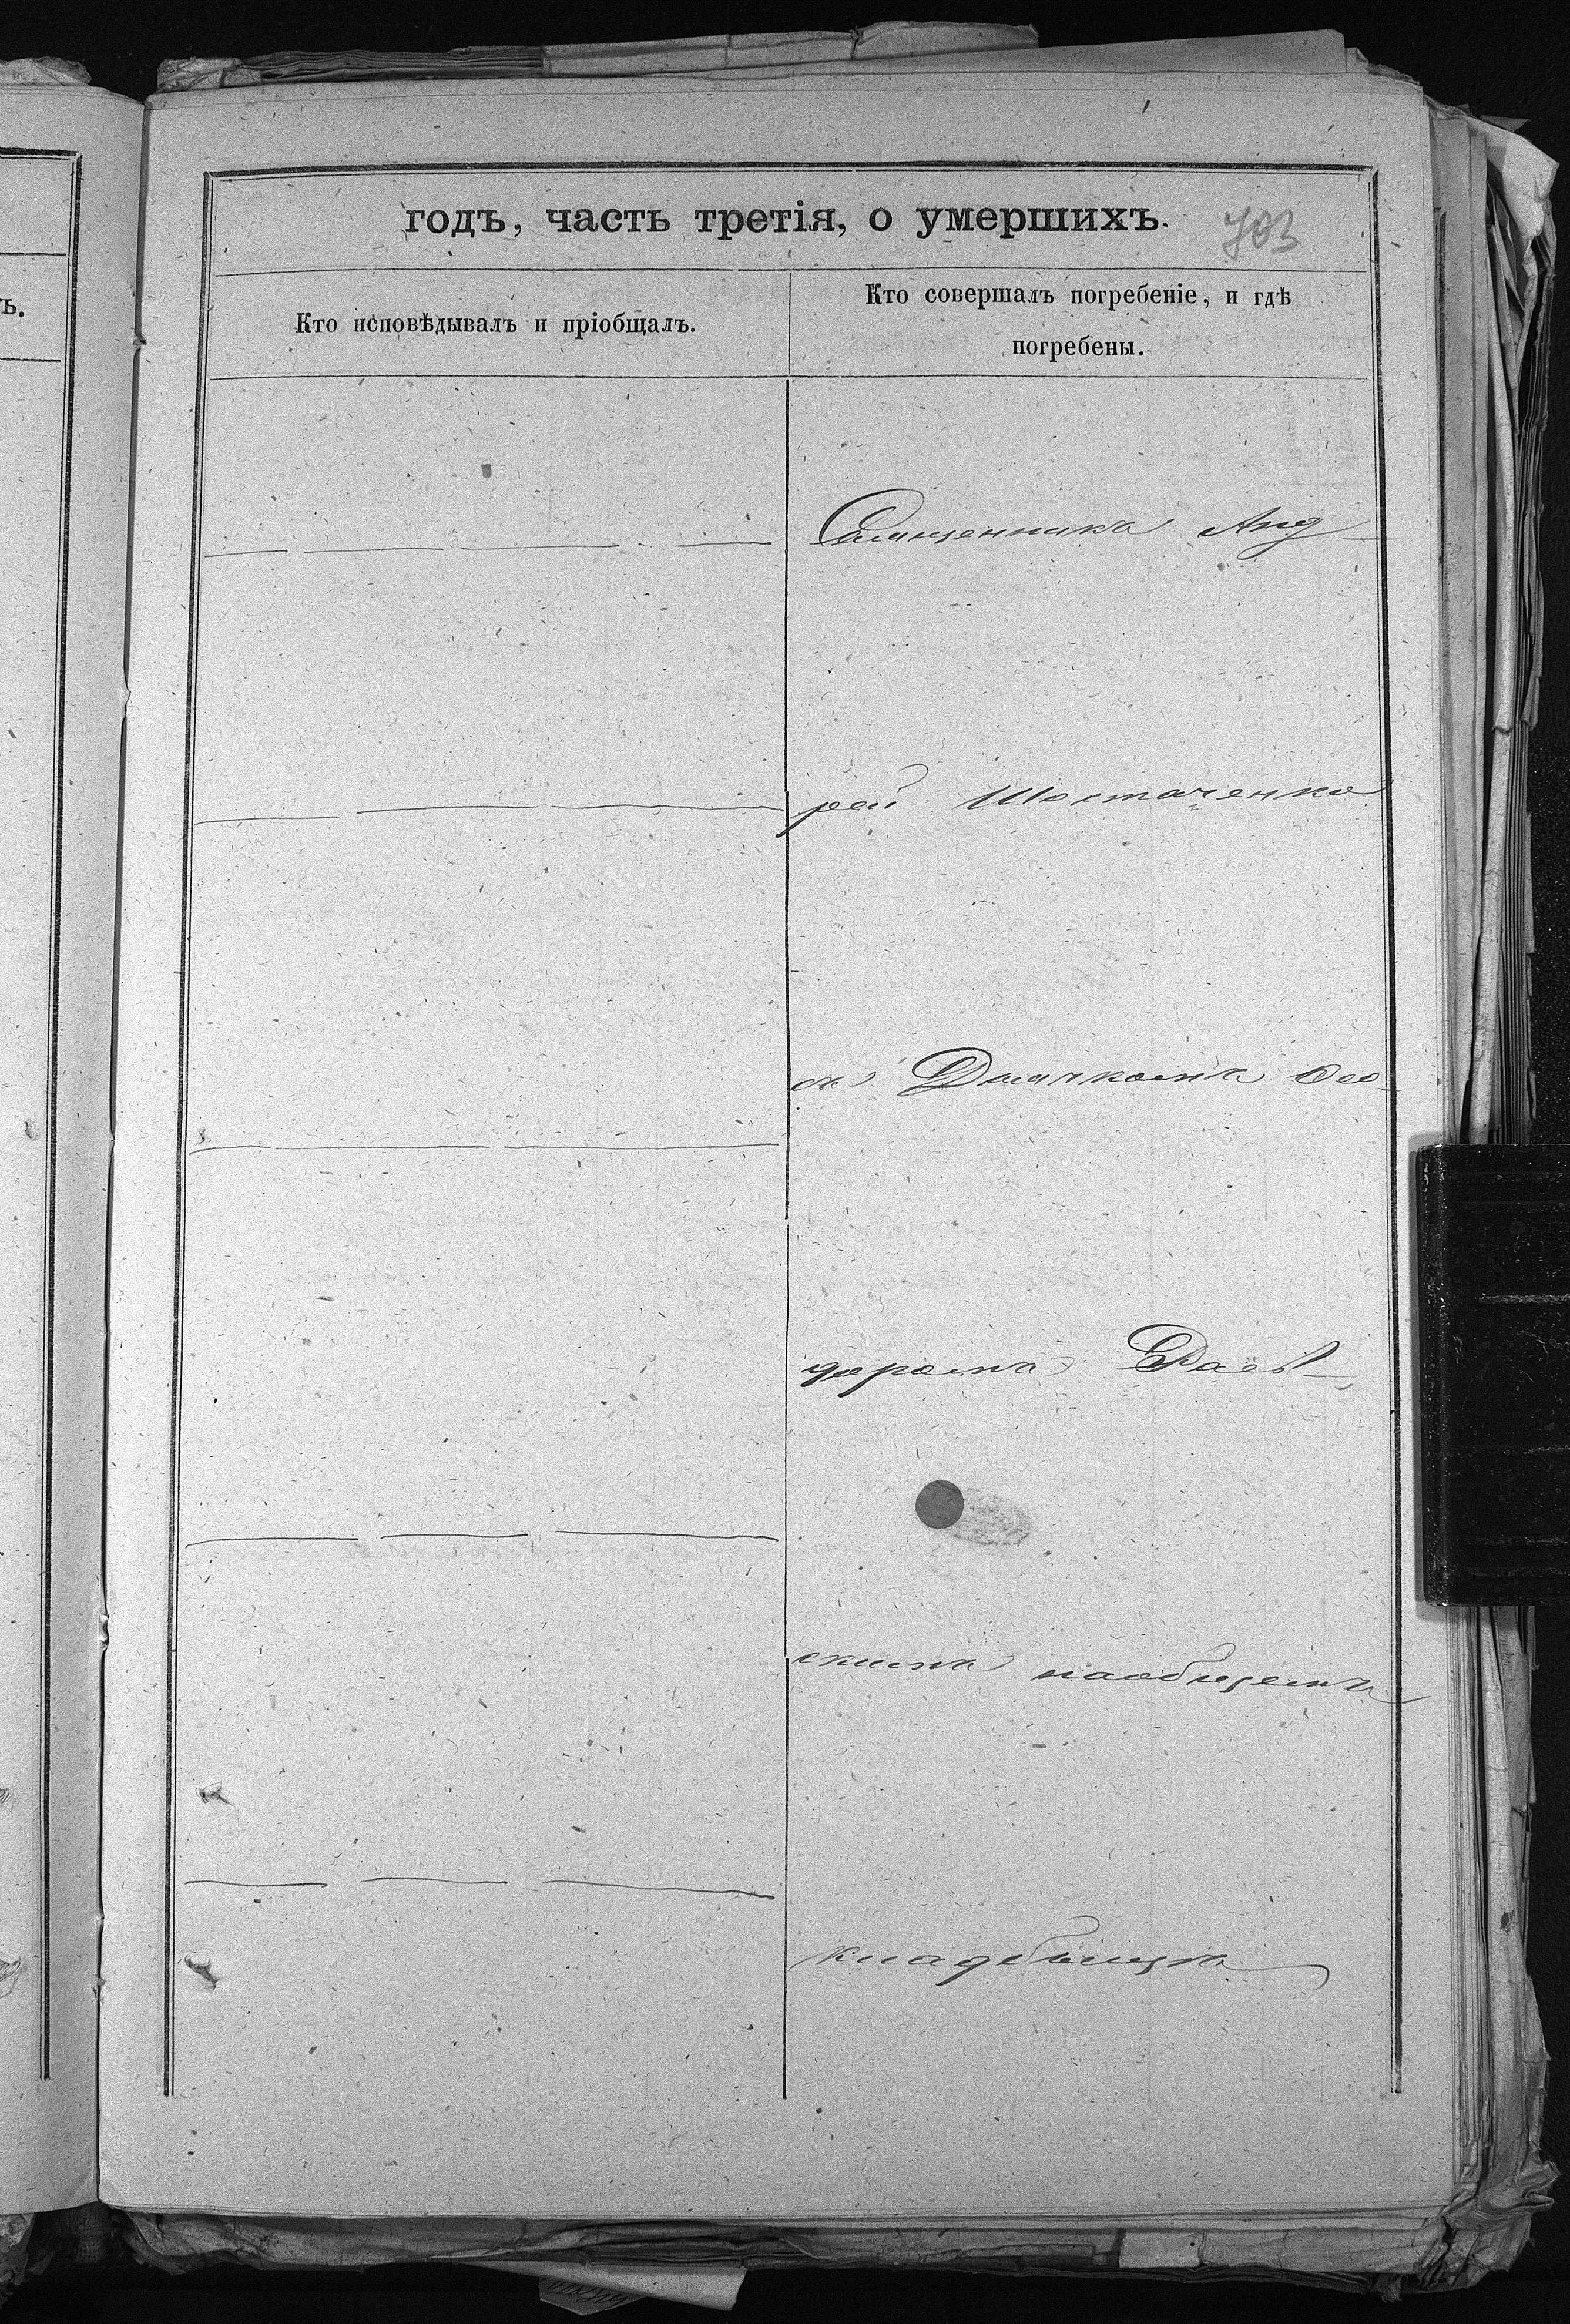 годъ, часть третія, о умершихъ.
703
Кто исповѣдывалъ и пріобщалъ.
Кто совершалъ погребеніе, и гдѣ
погребены.
Священникъ Анд
рей Шостаченко
съ Дьячкомъ Ѳео-
доромъ Раев-
скимъ наобщемъ
кладбищѣ
ъ.